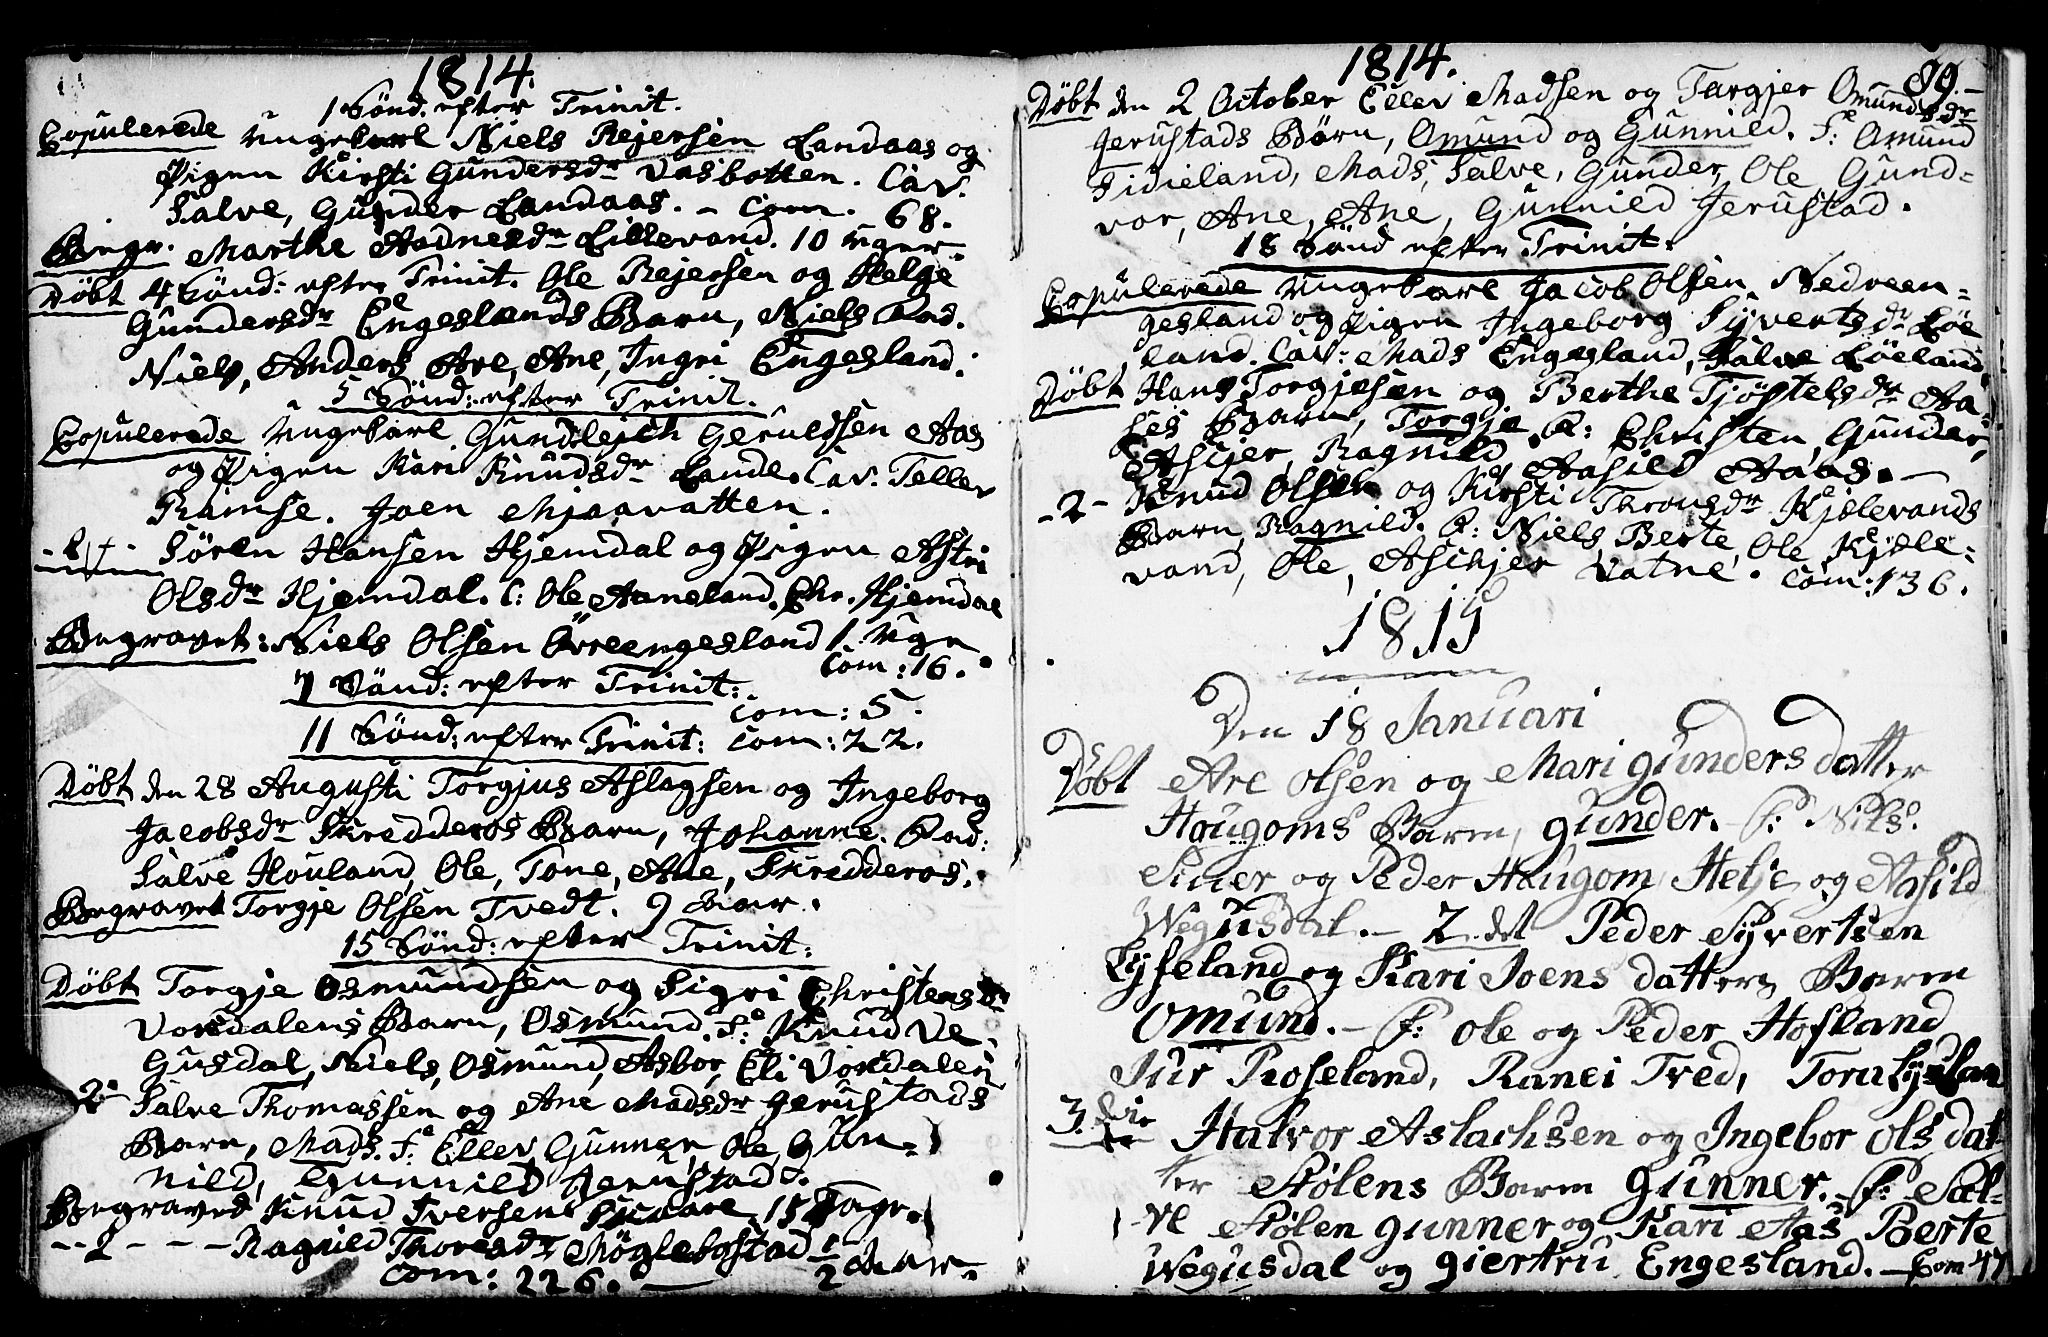 1814.
1 Sönd. efter Trinit.
Copulerede Ungekarl Niels Rejersen Landaas og
Pigen Kirsti Gundersdr Vasbotten. Cav.
Salve, Gunder Landaas. - Com. 68.
Begr. Marthe Aadnesdr Lillevand. 10 Uger
Döbt 4 Sönd: efter Trinit. Ole Rejersen og Helge
Gundersdr Engeslands Barn, Niels Fad.
Niels, Anders Are, Ane, Ingri Engesland.
5 Sönd: efter Trinit.
Copulerede Ungekarl Gundlejch Geruldsen Aas
og Pigen Kari Knudsdr Lande. Cav. Tellev
Ramse. Joen Mjaavatten.
Sören Hansen Hjemdal og Pigen Astri
Olsdr Hjemdal. C: Ole Aaneland. Chr. Hjemdal
Begravet: Niels Olsen Övreengesland 1. Uge
Com: 16.
7 Sönd: efter Trinit:
Com: 5.
11 Sönd: efter Trinit: Com: 22.
Döbt den 28 Augusti Torgjus Aslagsen og Ingeborg
Jacobsdr Skredderos Barn, Johanne. Fad:
Salve Houland, Ole, Tone, Ane, Skredderos.
Begravet Torgje Olsen Tvedt. 9 Aar.
15 Sönd: efter Trinit:
Döbt Torgje Osmundsen og Sigri Christensdr
Vordalens Barn, Osmund. F: Knud Ve-
gusdal, Niels, Osmund, Asbor, Eli Vordalen
2- Salve Thomassen og Ane Madsdr Gerustads
Barn, Mads. F: Ellev, Gunner, Ole, Gun-
nild, Gunnild Jerustad.
Begravet Knud Iversen 15 Dage.
--2--- Ragnild Thoresdr Möglebostad 1/2 Aar.
Com: 226.
1814. 89.-
Döbt den 2 October Ellev Madsen og Targjer Omundsdr
Jerustads Börn, Omund og Gunnild. F: Omund
Fidieland, Mads, Salve, Gunder, Ole Gund=
vor, Ane, Ane, Gunnild Jerustad.
18 Sönd efter Trinit.
Copulerede Ungekarl Jacob Olsen Nedreen=
gesland og Pigen Ingeborg Syvertsdr Löe
land. Cav: Mads Engesland, Salve Löeland,
Döbt Hans Torgjesen og Berthe Tjöstelsdr Aa=
ses Barn, Torgje. F: Christen, Gunder,
Aschjer, Ragnild, Aasild Aaas.
-2- Knud Olsen og Kirsti Thronsdr Kjölevands
Barn, Ragnild. F: Niels, Berte, Ole Kjöle=
vand, Ole, Aschjer Vatne. Com: 136.
1815
Den 18 Januari
Döbt Are Olsen og Mari gunders datter
Hougoms Barm, gunder. F: Nils.
Siuer og Peder Hougom Helje og Aasild
Wegusdal. - 2. det Peder Syvertsen
Lyseland og Kari Joens datters Barm
Omund. - F: Ole og Peder Hofland
Siur Roseland, Ranei Tved, Tora Lyslan
3. die Halvor Aslachsen og Ingebor Ols dat
ter Stølens Barm gunner. F: Sal-
ve Stølen gunner og Kari Aas Berte
Wegusdal og giertru Engesland. - Com 47